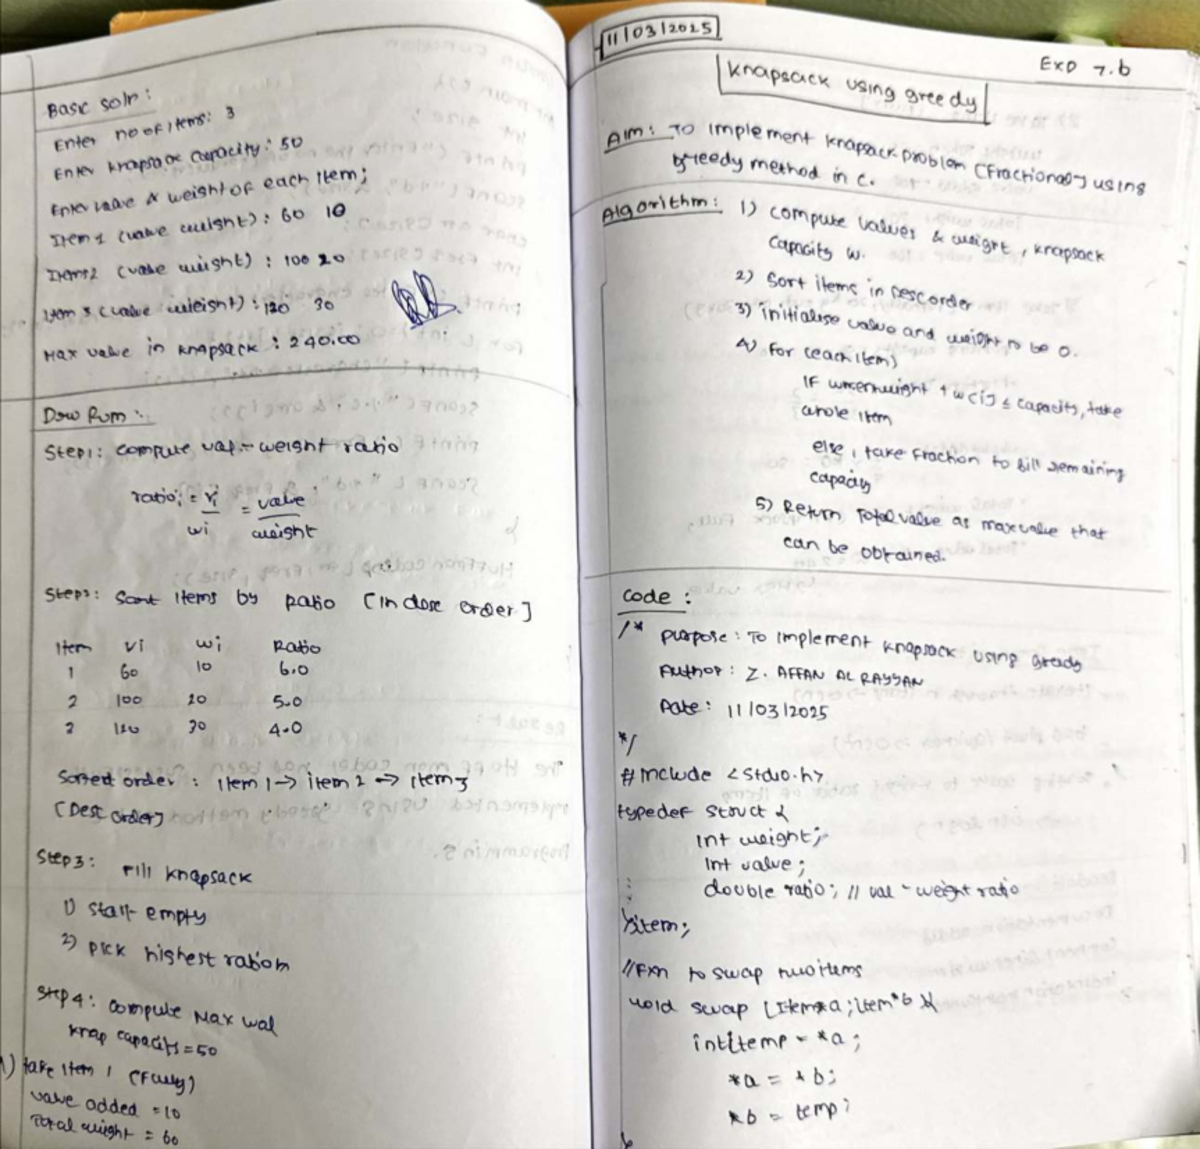 Basic soln:
Enter no of items: 3
Enter knapsack capacity: 50
Enter value & weight of each item;
Item 1 (value weight): 60 10
Item 2 (value weight): 100 20
Item 3 (value weight): 120 30
Max value in knapsack: 240.00
Step1: compute val - weight ratio
ratio i = vi/wi = value/weight
Sort items by Ratio [In desc order]
Item vi wi Ratio
1 60 10 6.0
2 100 20 5.0
120 30 4.0
Sorted order: item 1 → item 2 → item 3
(Desc order)
Step3: Fill knapsack
1) Start empty
2) pick highest ration
Step 4: compute Max val
knap capacity = 50
1) take item 1 (Fully)
value added = 10
Total weight = 60
11/03/2025
EXP 7.b
Knapsack using greedy
Aim: To implement knapsack problem (Fractional) using
greedy method in C.
Algorithm: 1) compute values & weight, knapsack
capacity w.
2) Sort items in desc order
3) initialise value and weight to be 0.
4) For (each item)
IF + w[i] ≤ capacity, take
whole item
else, take fraction to fill remaining
capacity
5) Return Total value as max value that
can be obtained.
Code:
/* purpose: To implement knapsack using greedy
Author: Z. AFFAN AL RAYYAN
Date: 11/03/2025
*/
#include <stdio.h>
typedef struct {
int weight;
int value;
double ratio; // val - weight ratio
}item;
//Fxn to swap two items
void swap (Item*a; Item*b){
temp = *a;
*a = *b;
*b = temp;
}